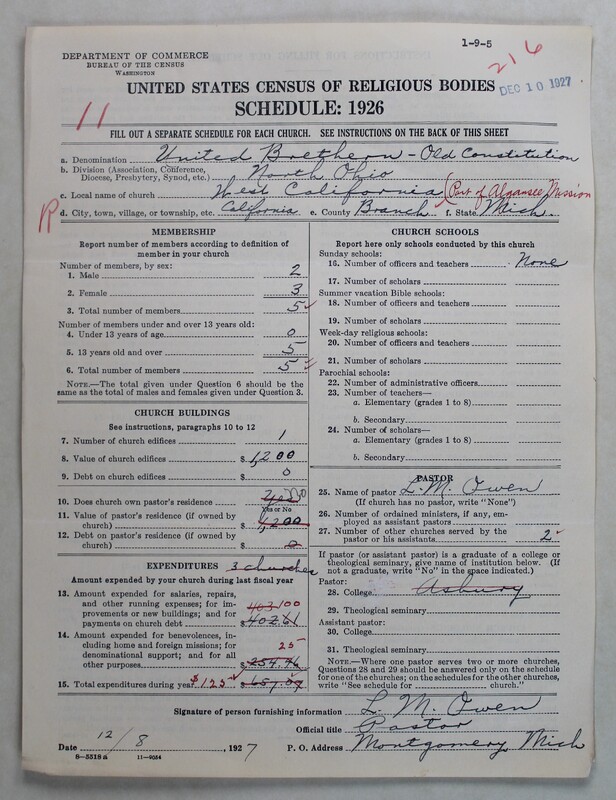 1-9-5
216
DEPARTMENT OF COMMERCE
BUREAU OF THE CENSUS
WASHINGTON
DEC 10 1927
UNITED STATES CENSUS OF RELIGIOUS BODIES
SCHEDULE: 1926
11
FILL OUT A SEPARATE SCHEDULE FOR EACH CHURCH. SEE INSTRUCTIONS ON THE BACK OF THIS SHEET
a. Denomination United Brethern - Old Constitution
b. Division (Association, Conference, Diocese, Presbytery, Synod, etc.) North Ohio
c. Local name of church West California (Part of Algansee Mission
d. City, town, village, or township, etc. California e. County Branch f. State Mich.
MEMBERSHIP
Report number of members according to definition of
member in your church
Number of members, by sex:
1. Male 2
2. Female 3
3. Total number of members 5
Number of members under and over 13 years old:
4. Under 13 years of age 0
5. 13 years old and over 5
6. Total number of members 5
NOTE.—The total given under Question 6 should be the
same as the total of males and females given under Question 3.
CHURCH BUILDINGS
See instructions, paragraphs 10 to 12
7. Number of church edifices 1
8. Value of church edifices $1,200
9. Debt on church edifices $ 0
10. Does church own pastor's residence Yes No
Yes or No
11. Value of pastor's residence (if owned by
church) $1,200
12. Debt on pastor's residence (if owned by
church) $ 0
EXPENDITURES 3 churches
Amount expended by your church during last fiscal year
13. Amount expended for salaries, repairs,
and other running expenses; for im-
provements or new buildings; and for
payments on church debt $402.61
100
14. Amount expended for benevolences, in-
cluding home and foreign missions; for
denominational support; and for all
other purposes $254.46
25
15. Total expenditures during year $125
CHURCH SCHOOLS
Report here only schools conducted by this church
Sunday schools:
16. Number of officers and teachers None
17. Number of scholars
Summer vacation Bible schools:
18. Number of officers and teachers
19. Number of scholars
Week-day religious schools:
20. Number of officers and teachers
21. Number of scholars
Parochial schools:
22. Number of administrative officers
23. Number of teachers—
a. Elementary (grades 1 to 8)
b. Secondary
24. Number of scholars—
a. Elementary (grades 1 to 8)
b. Secondary
PASTOR
25. Name of pastor L. M. Owen
(If church has no pastor, write "None")
26. Number of ordained ministers, if any, em-
ployed as assistant pastors
27. Number of other churches served by the
pastor or his assistants 2
If pastor (or assistant pastor) is a graduate of a college or
theological seminary, give name of institution below. (If
not a graduate, write "No" in the space indicated.)
Pastor:
28. College Asbury
29. Theological seminary
Assistant pastor:
30. College
31. Theological seminary
NOTE.—Where one pastor serves two or more churches,
Questions 28 and 29 should be answered only on the schedule
for one of the churches; on the schedules for the other churches,
write "See schedule for church."
Signature of person furnishing information L. M. Owen
Official title Pastor
Date 12/8, 1927 P. O. Address Montgomery Mich
8—5518 a 11—9054